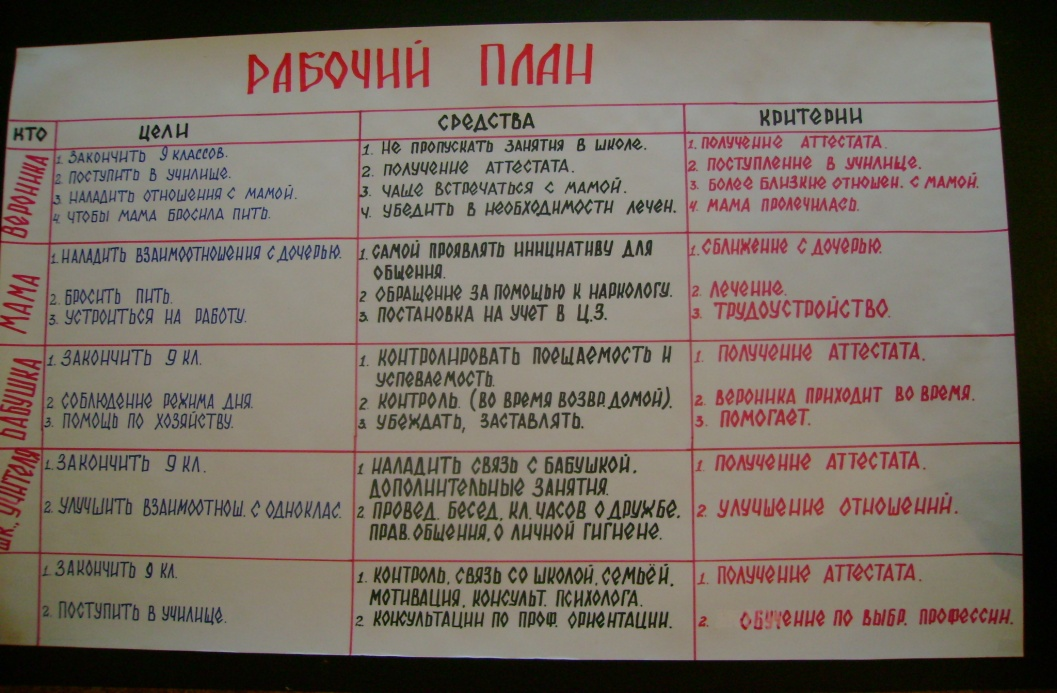 РАБОЧИЙ ПЛАН
КТО ЦЕЛИ СРЕДСТВА КРИТЕРИИ
ВЕРОНИКА
1. ЗАКОНЧИТЬ 9 КЛАССОВ.
2. ПОСТУПИТЬ В УЧИЛИЩЕ.
3. НАЛАДИТЬ ОТНОШЕНИЯ С МАМОЙ.
4. ЧТОБЫ МАМА БРОСИЛА ПИТЬ.
1. НЕ ПРОПУСКАТЬ ЗАНЯТИЯ В ШКОЛЕ.
2. ПОЛУЧЕНИЕ АТТЕСТАТА.
3. ЧАЩЕ ВСТРЕЧАТЬСЯ С МАМОЙ.
4. УБЕДИТЬ В НЕОБХОДИМОСТИ ЛЕЧЕН.
1. ПОЛУЧЕНИЕ АТТЕСТАТА.
2. ПОСТУПЛЕНИЕ В УЧИЛИЩЕ.
3. БОЛЕЕ БЛИЗКИЕ ОТНОШЕН. С МАМОЙ.
4. МАМА ПРОЛЕЧИЛАСЬ.
МАМА
1. НАЛАДИТЬ ВЗАИМООТНОШЕНИЯ С ДОЧЕРЬЮ.
2. БРОСИТЬ ПИТЬ.
3. УСТРОИТЬСЯ НА РАБОТУ.
1. САМОЙ ПРОЯВЛЯТЬ ИНИЦИАТИВУ ДЛЯ
ОБЩЕНИЯ.
2 ОБРАЩЕНИЕ ЗА ПОМОЩЬЮ К НАРКОЛОГУ.
3. ПОСТАНОВКА НА УЧЕТ В Ц.З.
1. СБЛИЖЕНИЕ С ДОЧЕРЬЮ.
2. ЛЕЧЕНИЕ.
3. ТРУДОУСТРОЙСТВО.
БАБУШКА
1. ЗАКОНЧИТЬ 9 КЛ.
2. СОБЛЮДЕНИЕ РЕЖИМА ДНЯ.
3. ПОМОЩЬ ПО ХОЗЯЙСТВУ.
1. КОНТРОЛИРОВАТЬ ПОЕЩАЕМОСТЬ И
УСПЕВАЕМОСТЬ.
2. КОНТРОЛЬ. (ВО ВРЕМЯ ВОЗВР. ДОМОЙ).
3. УБЕЖДАТЬ, ЗАСТАВЛЯТЬ.
1. ПОЛУЧЕНИЕ АТТЕСТАТА.
2. ВЕРОНИКА ПРИХОДИТ ВО ВРЕМЯ.
3. ПОМОГАЕТ.
ШК., УЧИТЕЛЯ
1. ЗАКОНЧИТЬ 9 КЛ.
2. УЛУЧШИТЬ ВЗАИМООТНОШ. С ОДНОКЛАС.
1 НАЛАДИТЬ СВЯЗЬ С БАБУШКОЙ,
ДОПОЛНИТЕЛЬНЫЕ ЗАНЯТИЯ.
2. ПРОВЕД. БЕСЕД, КЛ. ЧАСОВ О ДРУЖБЕ,
ПРАВ. ОБЩЕНИЯ, О ЛИЧНОЙ ГИГИЕНЕ.
1. ПОЛУЧЕНИЕ АТТЕСТАТА.
2. УЛУЧШЕНИЕ ОТНОШЕНИЙ.
1. ЗАКОНЧИТЬ 9 КЛ.
2. ПОСТУПИТЬ В УЧИЛИЩЕ.
1. КОНТРОЛЬ, СВЯЗЬ СО ШКОЛОЙ, СЕМЬЁЙ,
МОТИВАЦИЯ, КОНСУЛЬТ. ПСИХОЛОГА.
2. КОНСУЛЬТАЦИИ ПО ПРОФ. ОРИЕНТАЦИИ.
1. ПОЛУЧЕНИЕ АТТЕСТАТА.
2. ОБУЧЕНИЕ ПО ВЫБР. ПРОФЕССИИ.